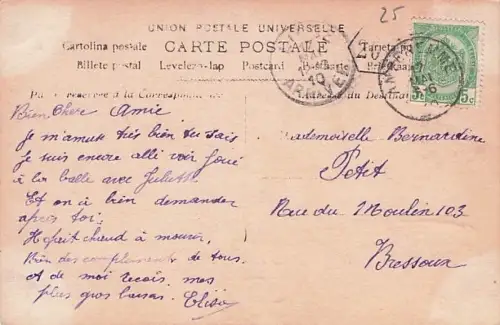 25
UNION POSTALE UNIVERSELLE
Cartolina postale CARTE POSTALE Tarjeta po
Billete postal Levelezo-lap Postcard
Bien Chère Amie
Je m'amuse très bien tu sais
Je suis encore allé voir joué
à la balle avec Juliette
Et on a bien demander
après toi.
Il fait chaud à mourir,
Bien des compliments de tous.
et de moi reçois mes
plus gros baisers. Elisa
ademoiselle Bernardine
Petit
Rue du Moulin 103
Bressoux
5c